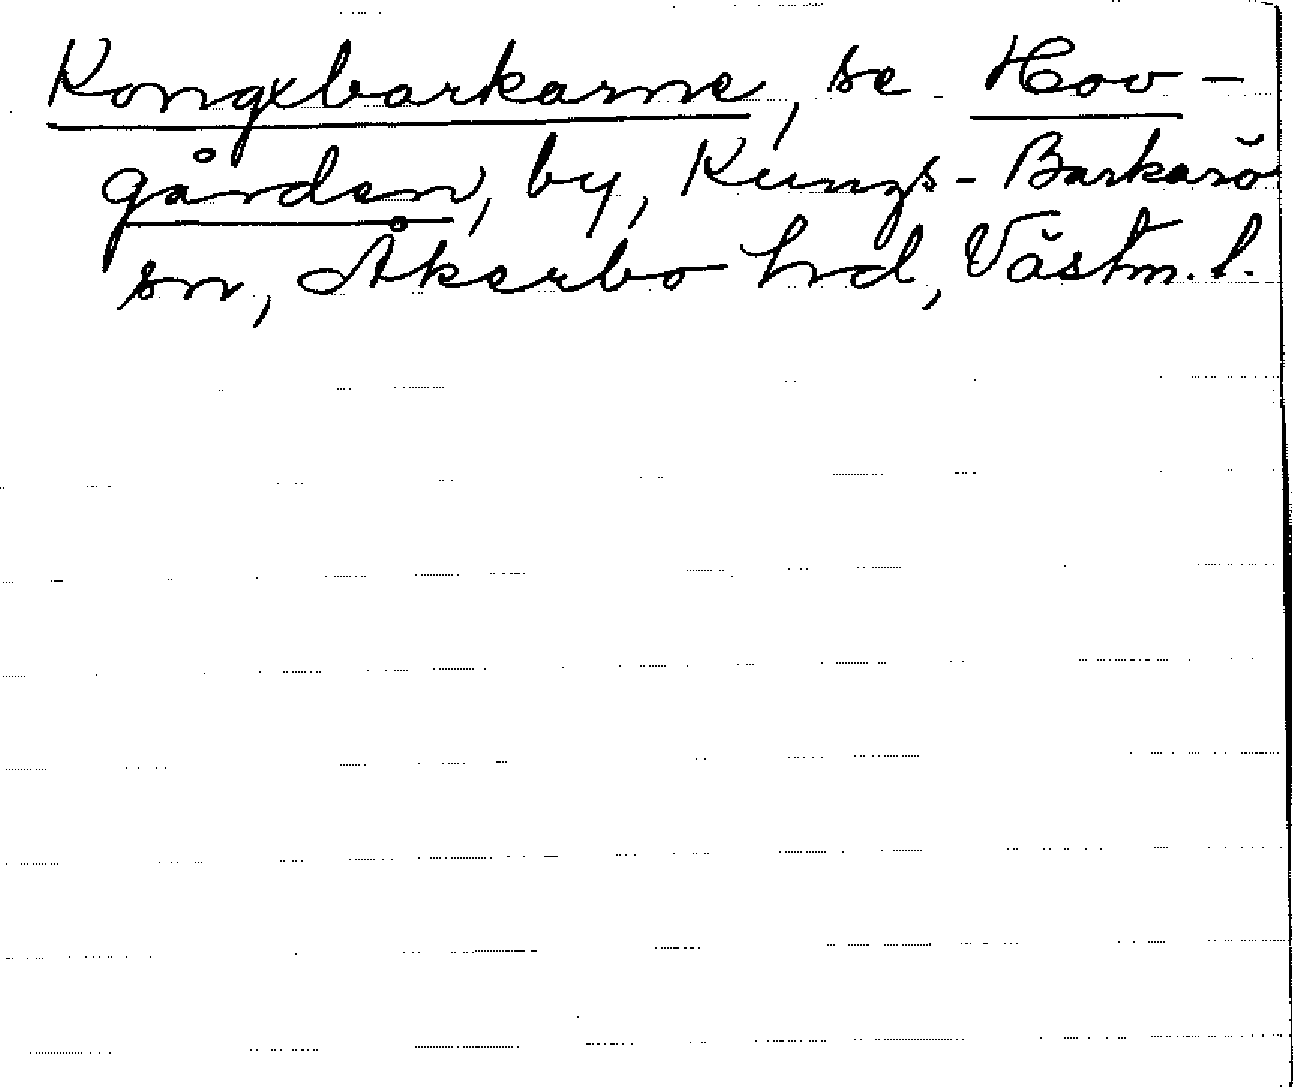 Kongxbarkarne, se Hov-
gården, by, Kungs-Barkarö
sn, Åkerbo hd, Västm. l.